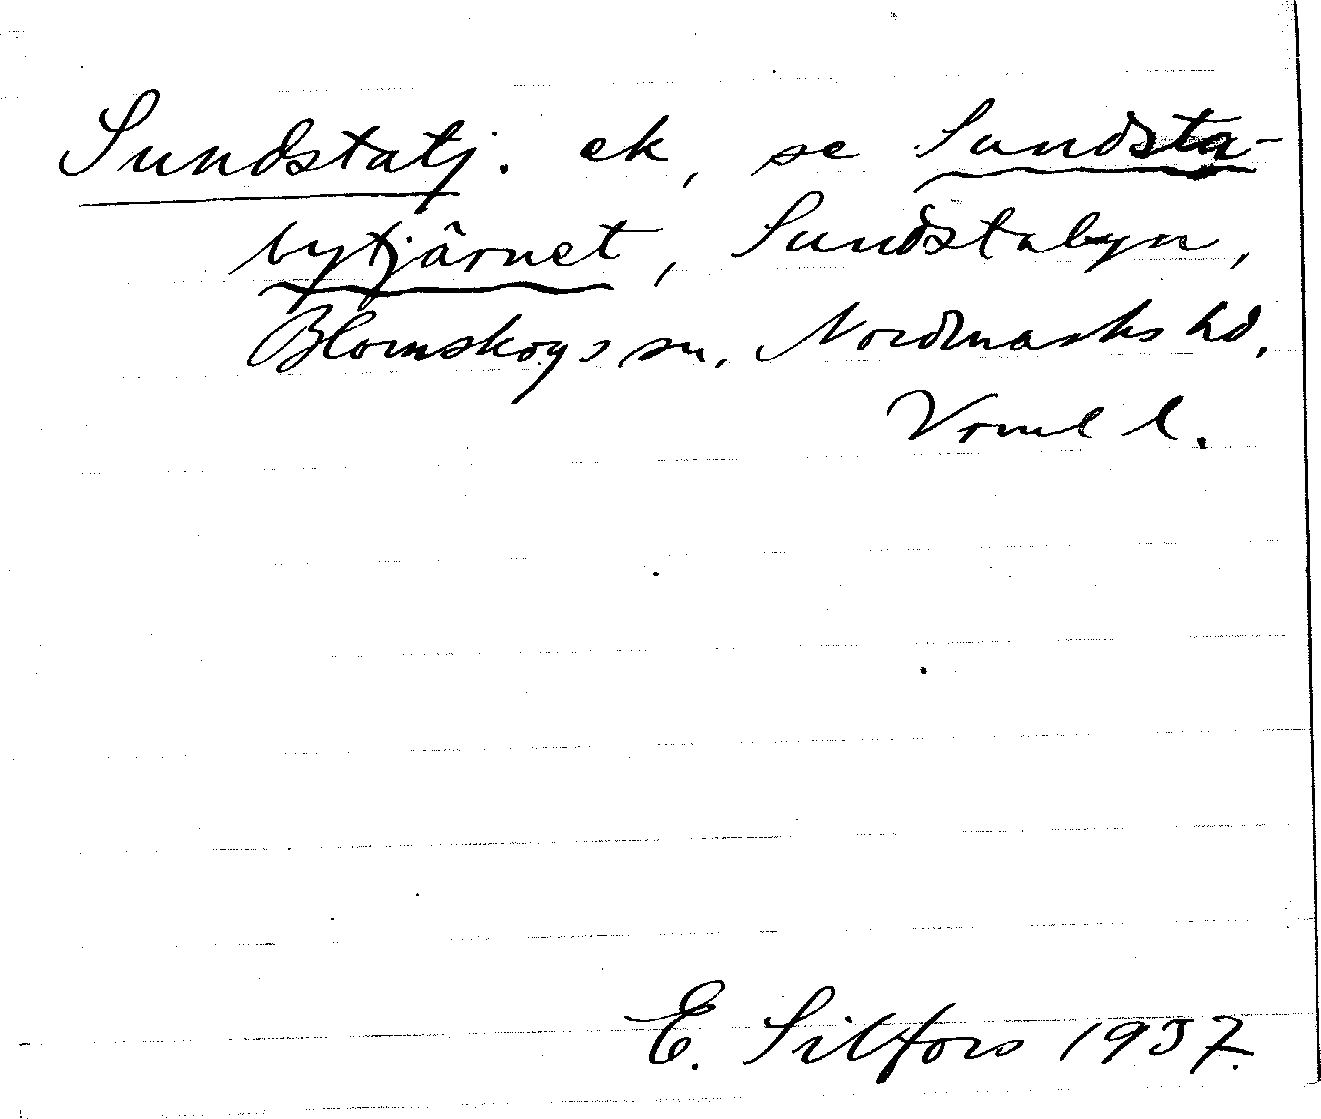 Sundstatj. ek, se Sundsta-
bytjärnet, Sundstabyn,
Blomskogs sn. Nordmarks hd.
Vrml l.
E. Silfors 1937.